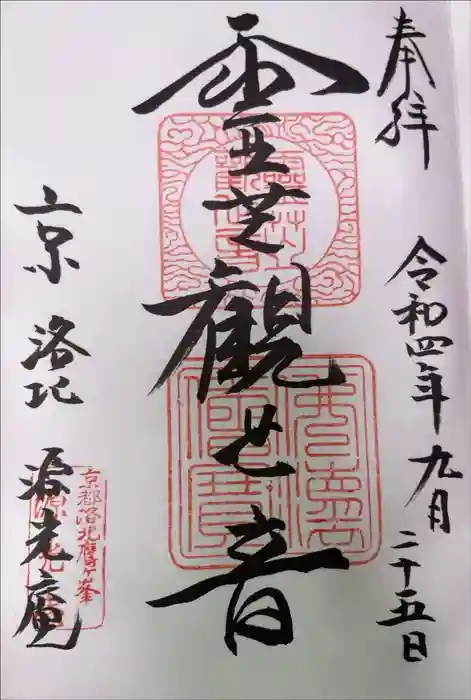 奉拝　令和四年九月二十五日
霊芝観世音
京洛北　源光庵
京都洛北鷹ヶ峯